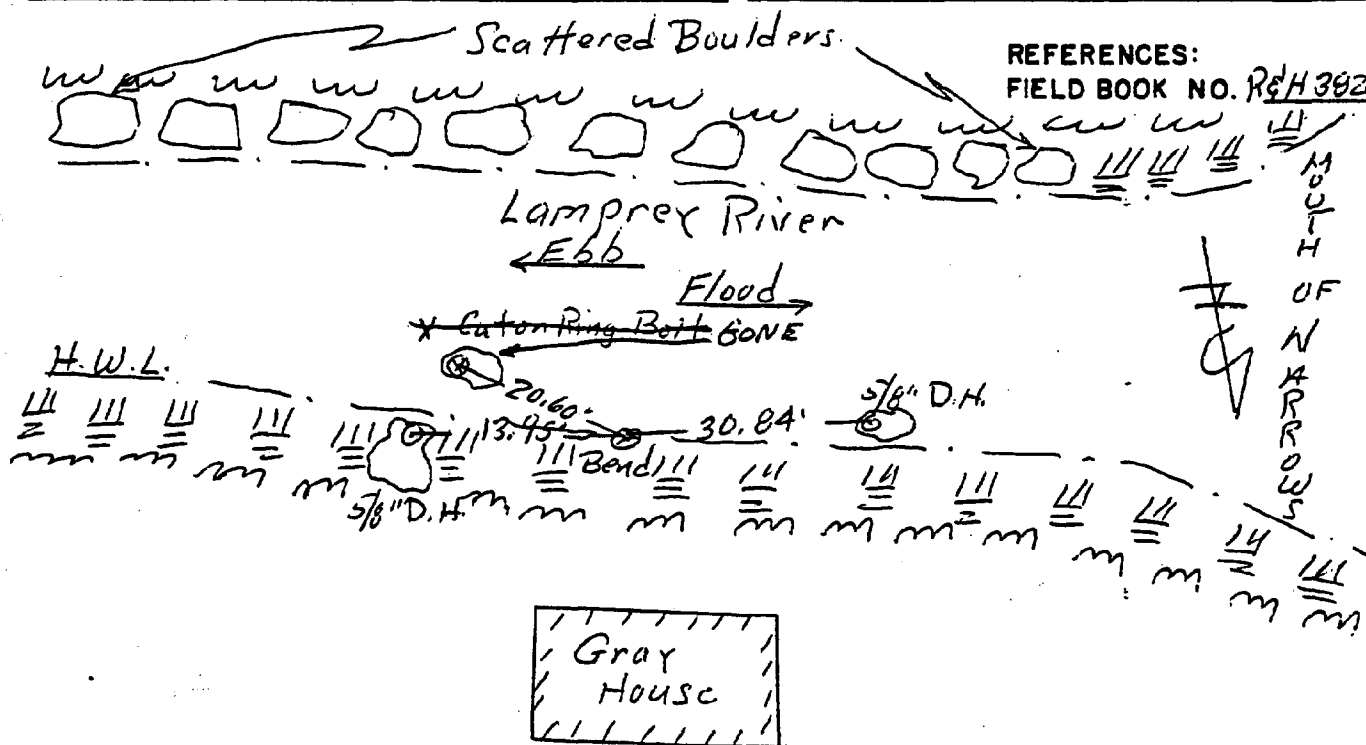 Scattered Boulders
REFERENCES:
FIELD BOOK NO. R&H 382
Lamprey River
Ebb
Flood
X Caton Ring Bolt GONE
H.W.L.
20.60'
13.95'
30.84'
5/8" D.H.
Bend
5/8" D.H.
MOUTH OF NARROWS
Gray
House